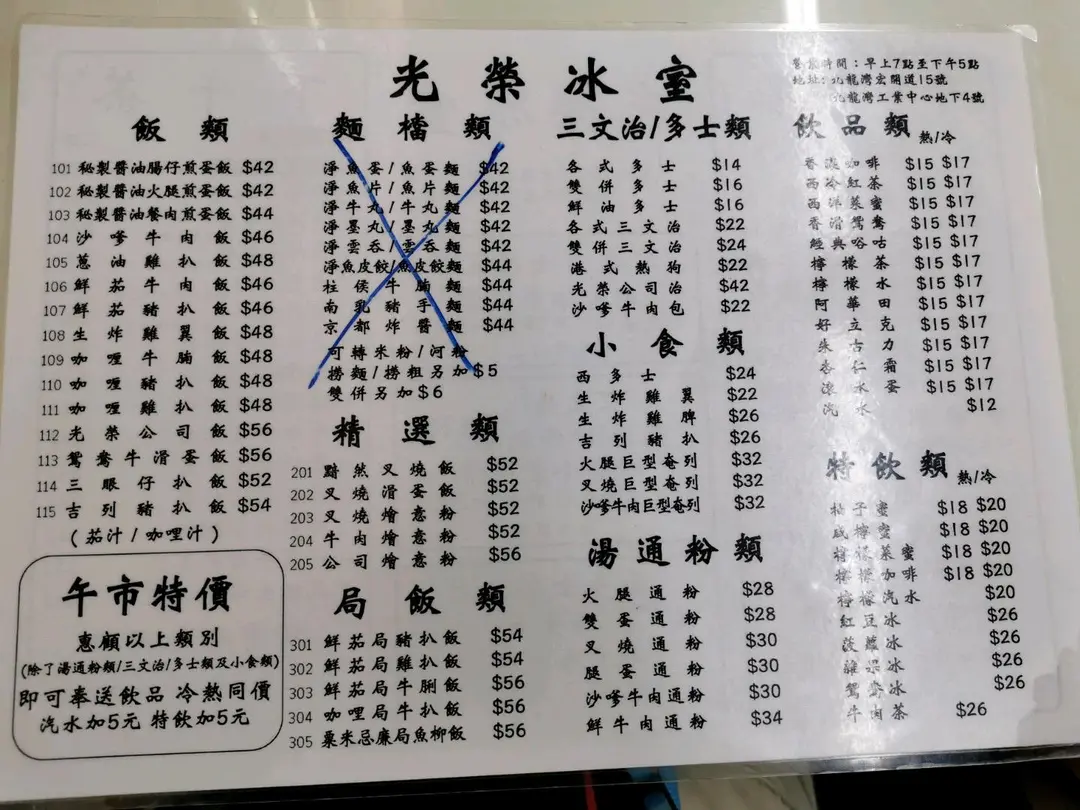 光榮冰室
營業時間：早上7點至下午5點
地址：九龍灣宏開道15號
九龍灣工業中心地下4號
飯類
101 秘製醬油腸仔煎蛋飯 $42
102 秘製醬油火腿煎蛋飯 $42
103 秘製醬油餐肉煎蛋飯 $44
104 沙嗲牛肉飯 $46
105 蔥油雞扒飯 $48
106 鮮茄牛肉飯 $46
107 鮮茄豬扒飯 $46
108 生炸雞翼飯 $48
109 咖喱牛腩飯 $48
110 咖喱豬扒飯 $48
111 咖喱雞扒飯 $48
112 光榮公司飯 $56
113 鴛鴦牛滑蛋飯 $56
114 三眼仔扒飯 $52
115 吉列豬扒飯 $54
(茄汁/咖哩汁)
午市特價
惠顧以上類別
(除了湯通粉類/三文治/多士類及小食類)
即可奉送飲品 冷熱同價
汽水加5元 特飲加5元
麵檔類
淨魚蛋/魚蛋麵 $42
淨魚片/魚片麵 $42
淨牛丸/牛丸麵 $42
淨墨丸/墨丸麵 $42
淨雲吞/雲吞麵 $42
淨魚皮餃/魚皮餃麵 $44
柱侯牛腩麵 $44
南乳豬手麵 $44
京都炸醬麵 $44
可轉米粉/河粉
撈麵/撈粗另加$5
雙併另加$6
精選類
201 黯然叉燒飯 $52
202 叉燒滑蛋飯 $52
203 叉燒燴意粉 $52
204 牛肉燴意粉 $52
205 公司燴意粉 $56
局飯類
301 鮮茄局豬扒飯 $54
302 鮮茄局雞扒飯 $54
303 鮮茄局牛脷飯 $56
304 咖哩局牛扒飯 $56
305 粟米忌廉局魚柳飯 $56
三文治/多士類
各式多士 $14
雙併多士 $16
鮮油多士 $16
各式三文治 $22
雙併三文治 $24
港式熱狗 $22
光榮公司治 $42
沙嗲牛肉包 $22
小食類
西多士 $24
生炸雞翼 $22
生炸雞脾 $26
吉列豬扒 $26
火腿巨型奄列 $32
叉燒巨型奄列 $32
沙嗲牛肉巨型奄列 $32
湯通粉類
火腿通粉 $28
雙蛋通粉 $28
叉燒通粉 $30
腿蛋通粉 $30
沙嗲牛肉通粉 $30
鮮牛肉通粉 $34
飲品類 熱/冷
香濃咖啡 $15 $17
西冷紅茶 $15 $17
西洋菜蜜 $15 $17
香滑鴛鴦 $15 $17
經典唂咕 $15 $17
檸檬茶 $15 $17
檸檬水 $15 $17
阿華田 $15 $17
好立克 $15 $17
朱古力 $15 $17
杏仁霜 $15 $17
滾水蛋 $15 $17
汽水 $12
特飲類 熱/冷
柚子蜜 $18 $20
咸檸蜜 $18 $20
檸菜蜜 $18 $20
檸檬咖啡 $18 $20
檸檬汽水 $20
紅豆冰 $26
菠蘿冰 $26
雜果冰 $26
鴛鴦冰 $26
牛肉茶 $26